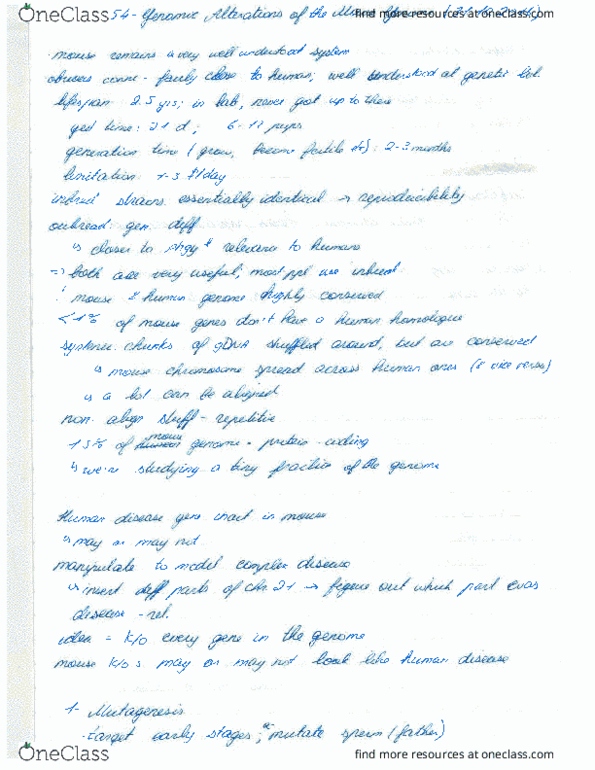 OneClass
find more resources at oneclass.com
54 - Genomic Alterations of the Mouse
find more resources at oneclass.com
· mouse remains a very well understood system
obvious conn - fairly close to human, well understood at genetic lvl.
lifespan 2.5 yrs; in lab, never get up to there
gest time: 21 d; 6-12 pups
generation time (grow, become fertile: 2-3 months
limitation $1/day
inbred strains essentially identical → reproducibility
outbread gen. diff
↳ closer to relevance to humans
⇒ both are very useful; most ppl use inbred
! mouse & human genome highly conserved
<1% of mouse genes don't have a human homologue
chunks of gDNA shuffled around, but are conserved
↳ mouse chromosome spread across human ones (& vice versa)
↳ a lot can be aligned
non-align stuff - repetitive
1.5% of mouse genome = protein-coding
↳ we're studying a tiny fraction of the genome
Human disease gene in mouse
↳ may or may not
manipulate to model complex disease
↳ insert diff parts of chr 21 → figure out which part was
disease-rel.
idea = k/o every gene in the genome
mouse k/o s may or may not look like human disease
1- Mutagenesis
- target early stages; mutate sperm (father)
OneClass
find more resources at oneclass.com